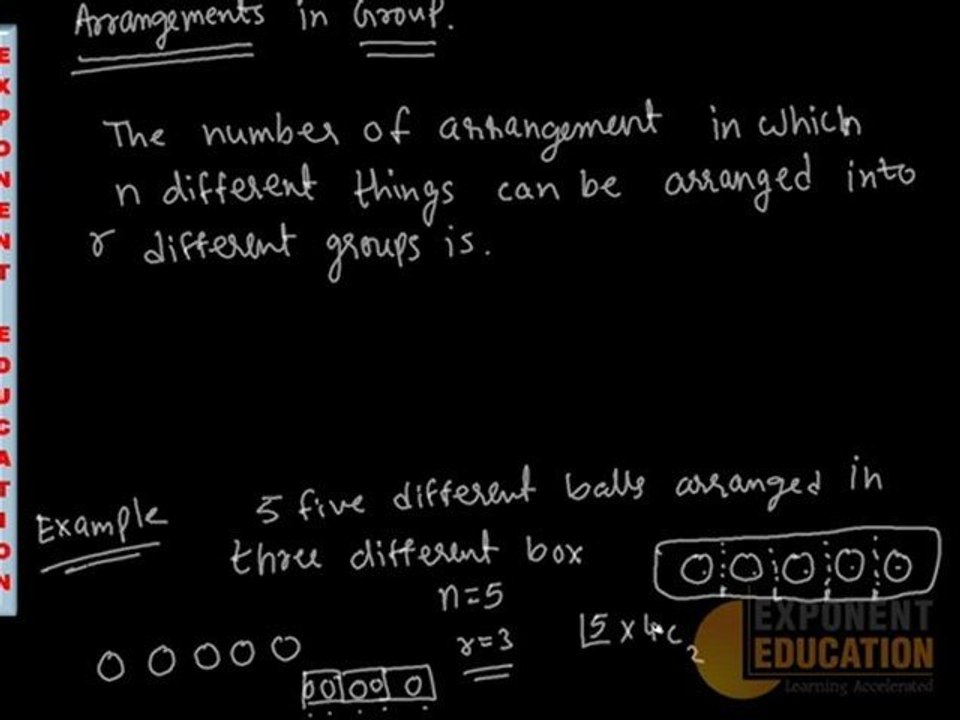 Arrangements in Group.
The number of arrangement in which
n different things can be arranged into
r different groups is.
Example
5 five different balls arranged in
three different box
n=5
r=3
⌊5 × 4c2
EXPONENT EDUCATION
EXPONENT
EDUCATION
Learning Accelerated